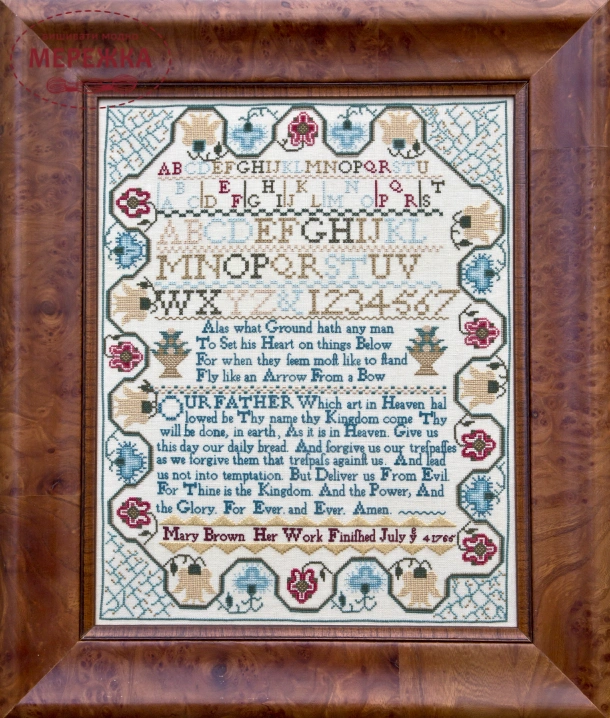 ВИШИВАТИ МОДНО
МЕРЕЖКА
ABCDEFGHIJKLMNOPQRSTU
A B C D E F G H I J K L M N O P Q R S T
ABCDEFGHIJKL
MNOPQRSTUV
WXYZ&1234567
Alas what Ground hath any man
To Set his Heart on things Below
For when they ſeem moſt like to ſtand
Fly like an Arrow From a Bow
OUR FATHER Which art in Heaven hal
lowed be Thy name thy Kingdom come Thy
will be done, in earth, As it is in Heaven. Give us
this day our daily bread. And forgive us our treſpaſſes
as we forgive them that treſpaſs againſt us. And lead
us not into temptation. But Deliver us From Evil.
For Thine is the Kingdom. And the Power, And
the Glory. For Ever. and Ever. Amen.
Mary Brown Her Work Finiſhed July ye 4 1766